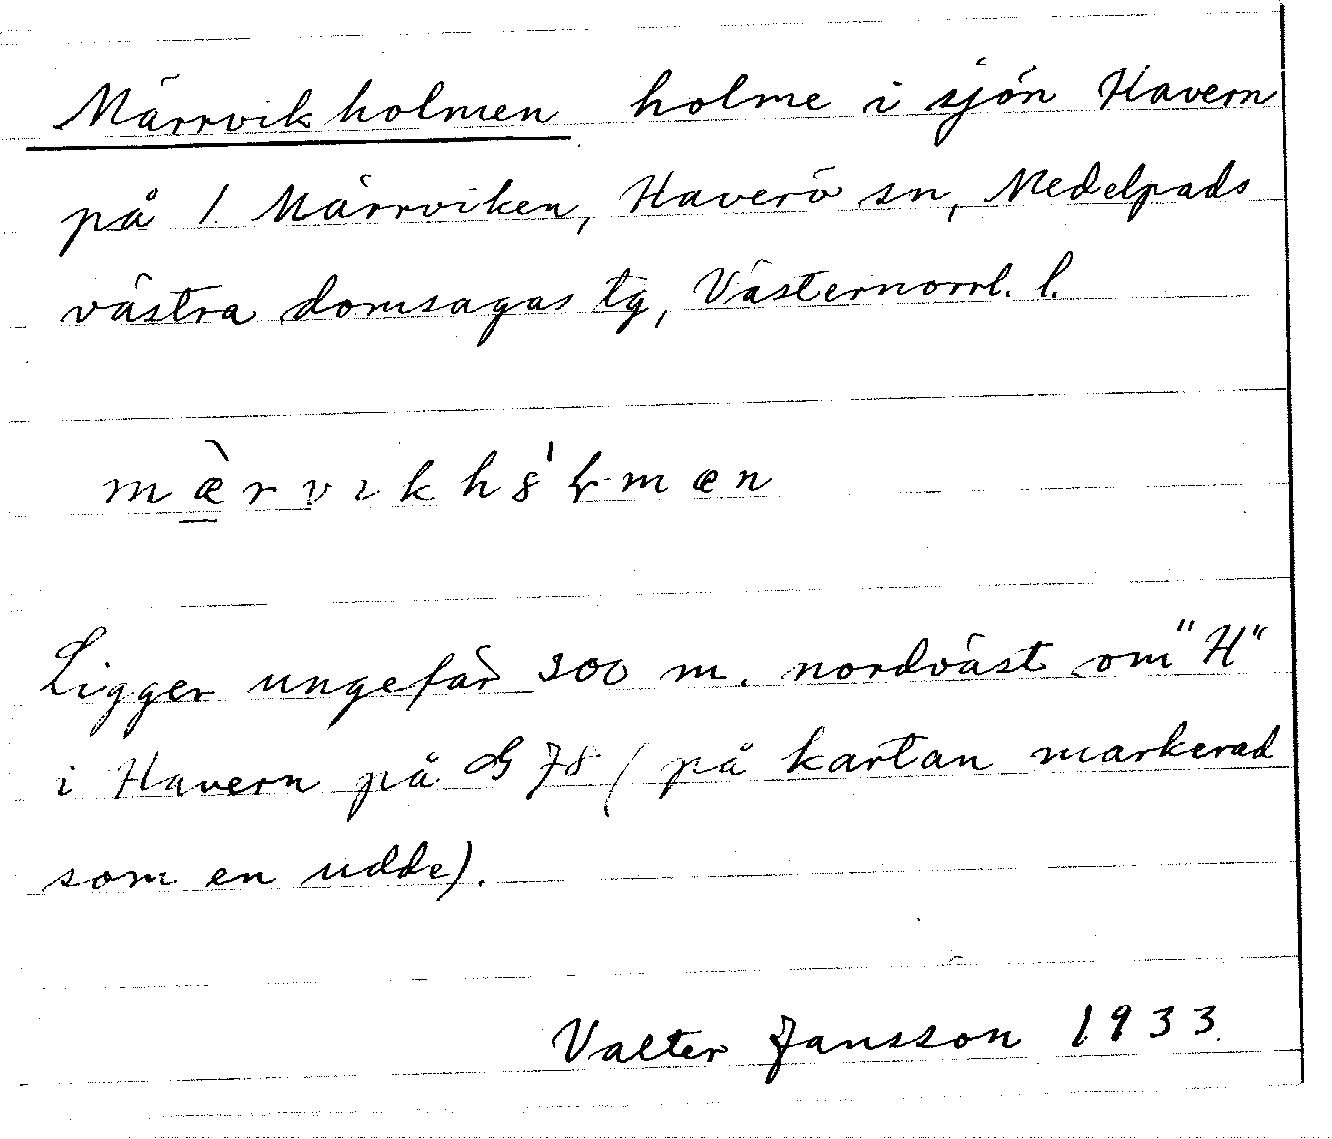 Märrvikholmen holme i sjön Havern
på 1 Märrviken, Haverö sn, Medelpads
västra domsagas tg, Västernorrl. l.
mæ̀rvikh8ˈɫmæn
Ligger ungefär 300 m. nordväst om "H"
i Havern på G 78 (på kartan markerad
som en udde).
Valter Jansson 1933